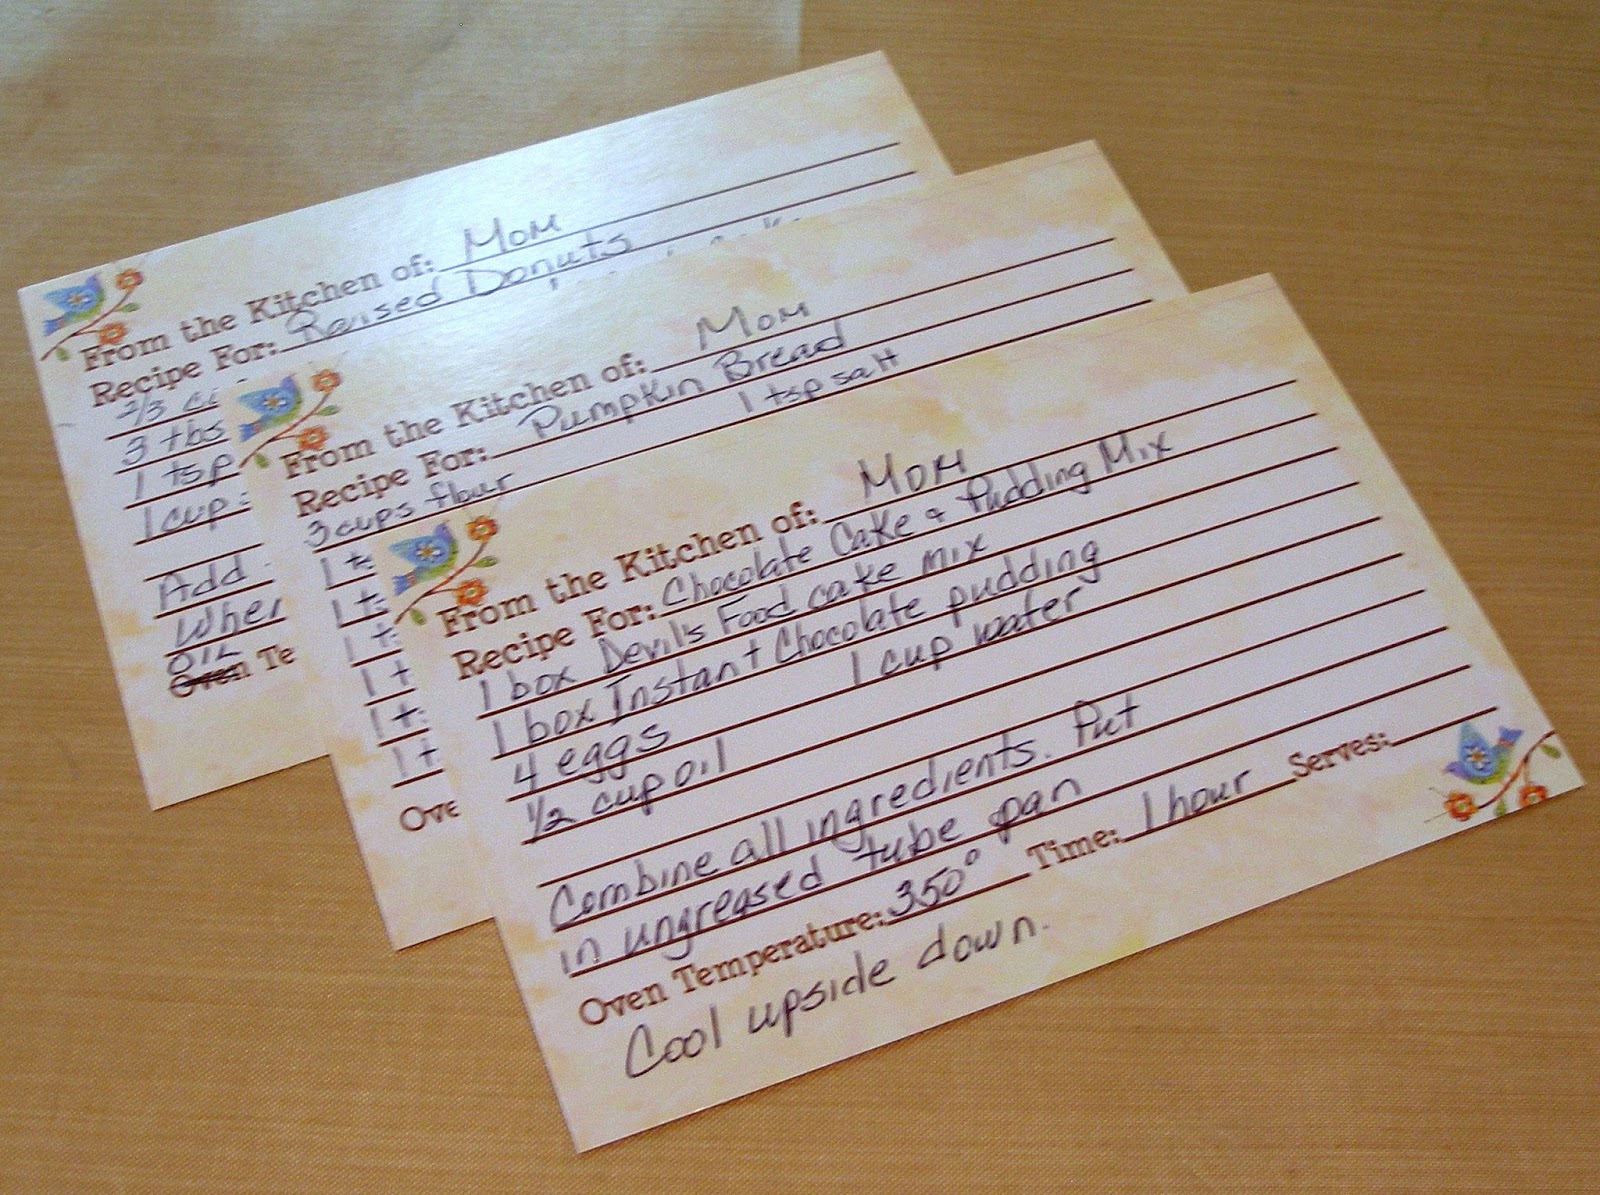 From the Kitchen of: Mom
Recipe For: Raised Donuts
2/3
3 tbs
1 tsp
1 cup
Add
When
OIL
Oven Te
From the Kitchen of: Mom
Recipe For: Pumpkin Bread
3 cups flour 1 tsp salt
1 t
1 t
1 t
1 t
1 t
1 t
Ove
From the Kitchen of: Mom
Recipe For: Chocolate Cake & Pudding Mix
1 box Devil's Food cake mix
1 box Instant Chocolate pudding
4 eggs 1 cup water
1/2 cup oil
Combine all ingredients. Put
in ungreased tube pan
Oven Temperature: 350° Time: 1 hour Serves:
Cool upside down.